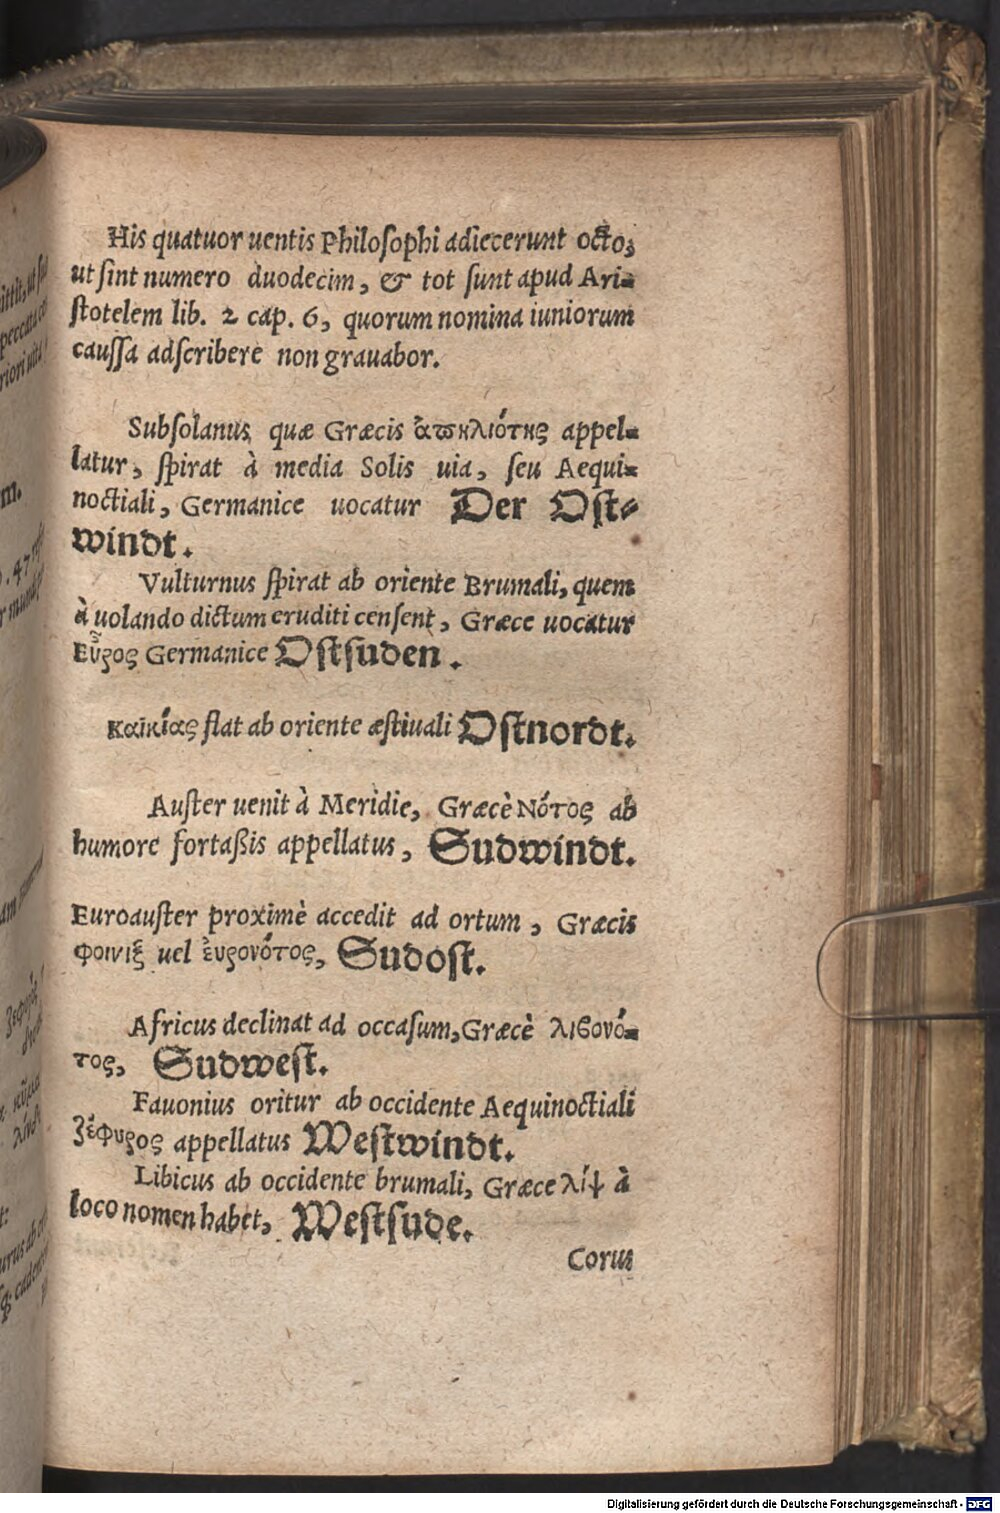 His quatuor uentis Philosophi adiecerunt octo,
ut sint numero duodecim, & tot sunt apud Ari=
stotelem lib. 2 cap. 6, quorum nomina iuniorum
caussa adscribere non grauabor.
Subsolanus, quæ Græcis ἀπηλιότης appel=
latur, spirat à media Solis uia, seu Aequi=
noctiali, Germanice uocatur Der Ost=
windt.
Vulturnus spirat ab oriente Brumali, quem
à uolando dictum eruditi censent, Græce uocatur
Εὖρος Germanice Ostsuden.
Καϊκίας flat ab oriente æstiuali Ostnordt.
Auster uenit à Meridie, Græcè Νότος ab
humore fortaßis appellatus, Sudwindt.
Euroauster proximè accedit ad ortum, Græcis
φοινιξ uel ἐυρονότος, Sudost.
Africus declinat ad occasum, Græcè λιβονό=
τος, Sudwest.
Fauonius oritur ab occidente Aequinoctiali
ζέφυρος appellatus Westwindt.
Libicus ab occidente brumali, Græce λίψ à
loco nomen habet, Westsude.
Corus
Digitalisierung gefördert durch die Deutsche Forschungsgemeinschaft - DFG